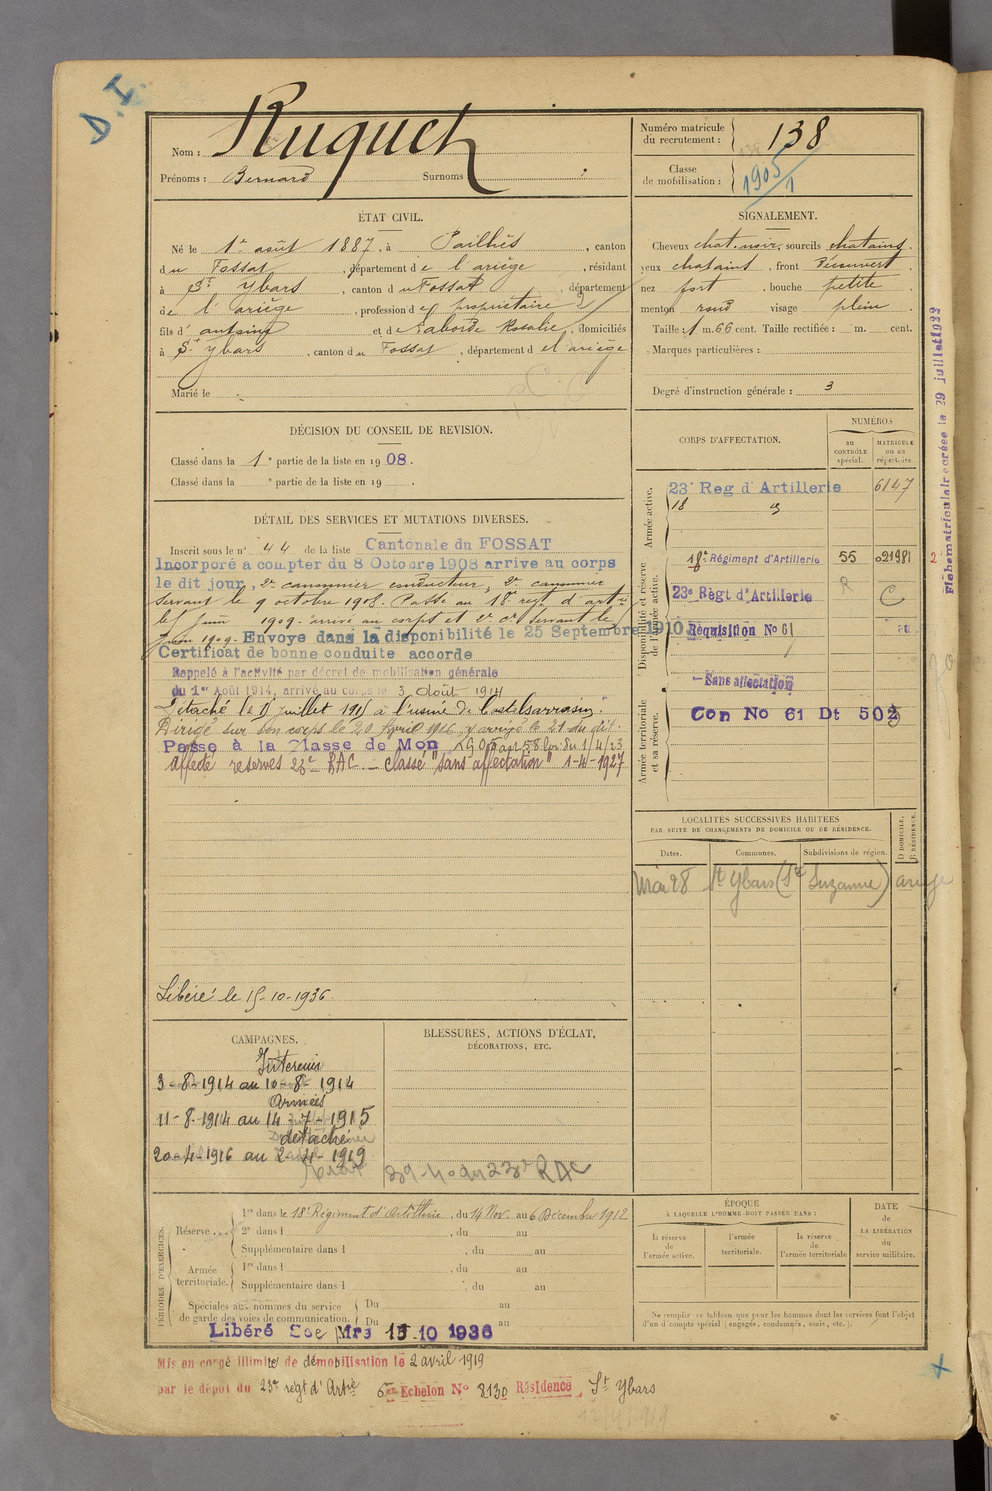 D. I.
Nom : Ruquet
Prénoms : Bernard Surnoms :
Numéro matricule du recrutement : 138
Classe de mobilisation : 1905/1
ÉTAT CIVIL.
Né le 1er août 1887, à Pailhès, canton
du Fossat, département de l'ariège, résidant
à St Ybars, canton du Fossat, département
de l'ariège, profession de propriétaire 2
fils d'antoine et de Laborde Rosalie, domiciliés
à St ybars, canton du Fossat, département de l'ariège
Marié le
SIGNALEMENT.
Cheveux chat. noir, sourcils chatains.
yeux chatains, front Découvert
nez fort, bouche petite
menton rond visage plein
Taille : 1 m. 66 cent. Taille rectifiée : m. cent.
Marques particulières :
Degré d'instruction générale : 3
DÉCISION DU CONSEIL DE REVISION.
Classé dans la 1e partie de la liste en 1908.
Classé dans la e partie de la liste en 19 .
DÉTAIL DES SERVICES ET MUTATIONS DIVERSES.
Inscrit sous le n° 44 de la liste Cantonale du FOSSAT
Incorporé a compter du 8 Octobre 1908 arrive au corps
le dit jour, 2e canonnier conducteur, 2e canonnier
servant le 9 octobre 1908. Passé au 18e regt d'artie
le 5 juin 1909. arrivé au corps et 2e cr servant le
juin 1909. Envoye dans la disponibilité le 25 Septembre 1910
Certificat de bonne conduite accorde
Rappelé à l'activité par décret de mobilisation générale
du 1er Août 1914, arrivé au corps le 3 Août 1914
Détaché le 15 juillet 1915 à l'usine de Castelsarrasin.
Dirigé sur son corps le 20 Avril 1916, y arrivé le 21 du dit.
Passe à la Classe de Mon 1905 art 58 loi du 1/4/23
Affecté reserves 23e RAC – classé "sans affectation" 1-4-1927
Libéré le 15-10-1936
CORPS D'AFFECTATION.
NUMÉROS
AU CONTRÔLE spécial.
MATRICULE ou au répertoire.
Armée active.
23e Reg d'Artillerie 6147
18 d°
Disponibilité et réserve de l'armée active.
18e Régiment d'Artillerie 55 021981
23e Règt d'Artillerie R C
Réquisition No 61
Sans affectation
Armée territoriale et sa réserve.
Con No 61 Dt 502
Fiche matriculaire créée le 29 juillet 1922
LOCALITÉS SUCCESSIVES HABITÉES
PAR SUITE DE CHANGEMENTS DE DOMICILE OU DE RÉSIDENCE.
Dates. Communes. Subdivisions de région. D DOMICILE, R RÉSIDENCE.
Mai 28 St Ybars (Ste Suzanne) ariège
CAMPAGNES.
Intérieur
3-8-1914 au 10-8-1914
Armées
11-8-1914 au 14-7-1915
détaché
20-4-1916 au 2-4-1919
BLESSURES, ACTIONS D'ÉCLAT,
DÉCORATIONS, ETC.
39-40 du 23e RAC
PÉRIODES D'EXERCICES.
Réserve... 1re dans le 18e Régiment d'Artillerie, du 14 Nov. au 6 Decembre 1912
2e dans l , du au
Supplémentaire dans l , du au
Armée territoriale. 1re dans l , du au
Supplémentaire dans l , du au
Spéciales aux hommes du service de garde des voies de communication. Du au
Du au
Libéré Sce Mre 15.10 1936
ÉPOQUE
À LAQUELLE L'HOMME DOIT PASSER DANS :
la réserve de l'armée active.
l'armée territoriale.
la réserve de l'armée territoriale
DATE de LA LIBÉRATION du service militaire.
Ne remplir ce tableau que pour les hommes dont les services font l'objet
d'un décompte spécial (engagés, condamnés, omis, etc.).
Mis en congé illimité de démobilisation le 2 avril 1919
par le dépôt du 23e regt d'Artie 6e Echelon No 8130 Résidence St Ybars